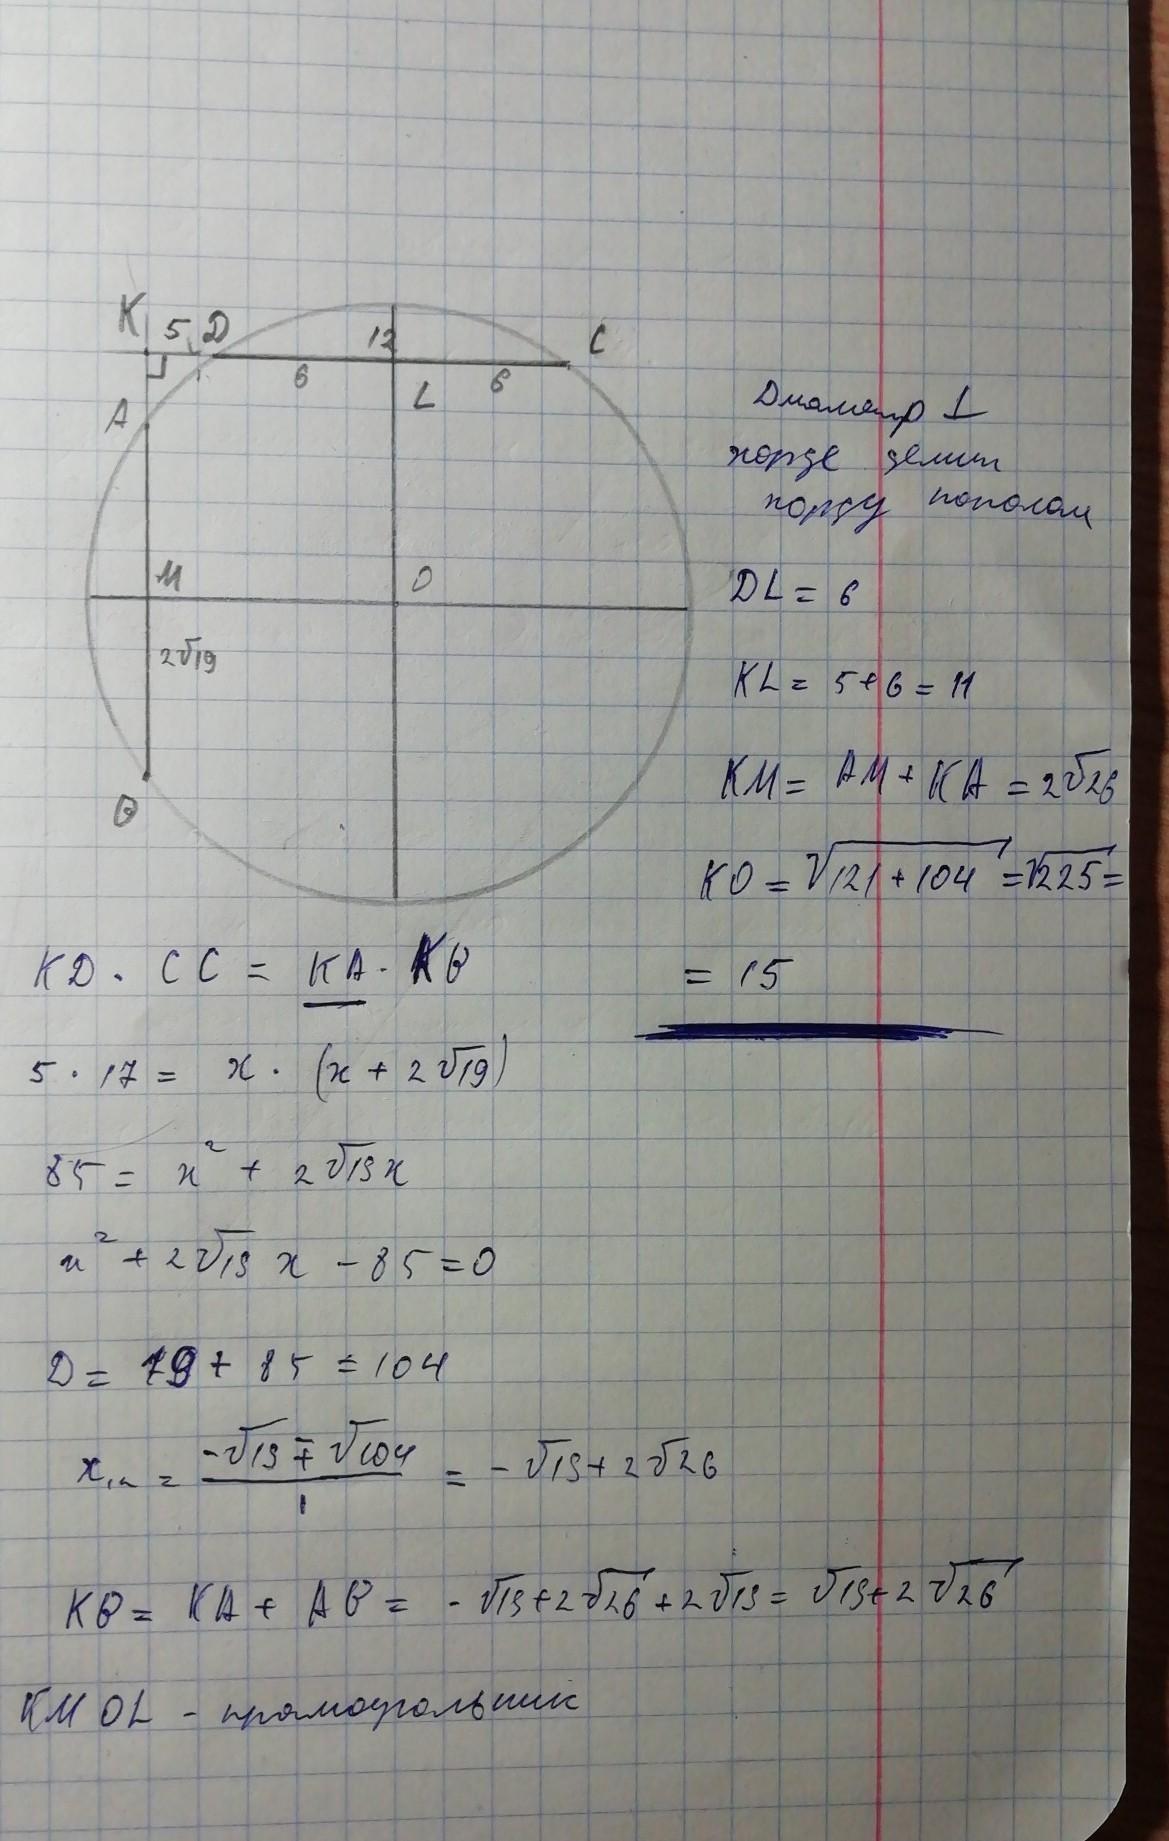 K 5 D 12 C
6 6
L
A
M O
2√19
B
Диаметр ⊥
хорде делит
хорду пополам
DL = 6
KL = 5+6 = 11
KM = AM + KA = 2√26
KO = √121 + 104 = √225 =
= 15
KD · CC = KA · KB
5 · 17 = x · (x + 2√19)
85 = x² + 2√19x
x² + 2√19 x - 85 = 0
D = 19 + 85 = 104
x₁,₂ = -√19 ∓ √104 / 1 = -√19 + 2√26
KB = KA + AB = -√19 + 2√26 + 2√19 = √19 + 2√26
KMOL - прямоугольник